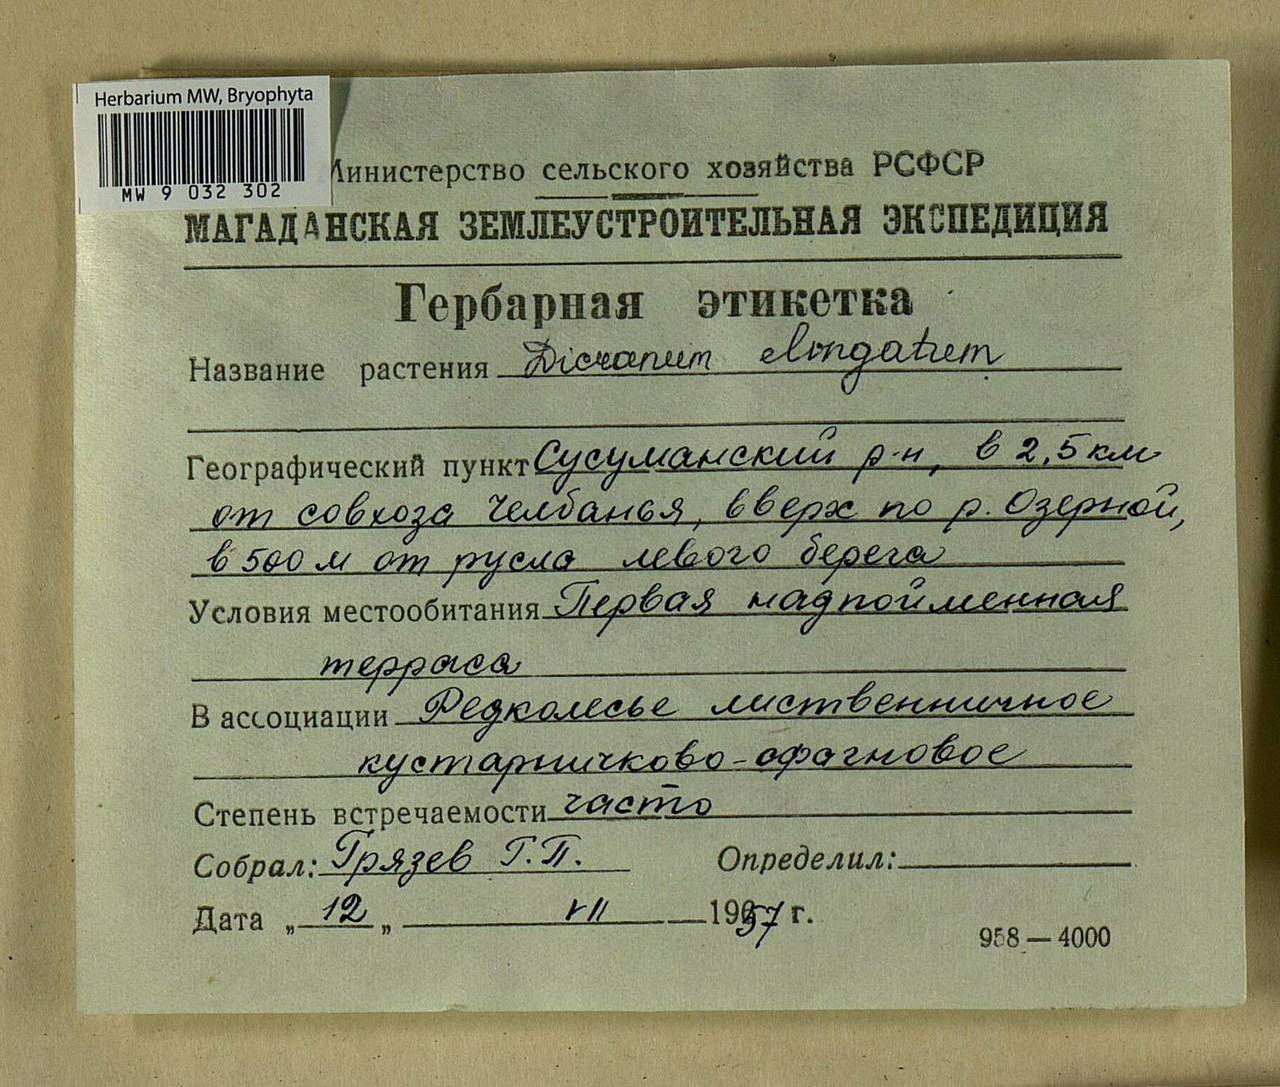 Herbarium MW, Bryophyta
MW 9 032 302
Министерство сельского хозяйства РСФСР
МАГАДАНСКАЯ ЗЕМЛЕУСТРОИТЕЛЬНАЯ ЭКСПЕДИЦИЯ
Гербарная этикетка
Название растения Dicranum elongatum
Географический пункт Сусуманский р-н, в 2,5 км
от совхоза Челбанья, вверх по р. Озерной,
в 500 м от русла левого берега
Условия местообитания Первая надпойменная
терраса
В ассоциации Редколесье лиственничное
кустарничково-сфагновое
Степень встречаемости часто
Собрал: Грязев Г.П. Определил:
Дата „12„ VII 1957 г.
958 — 4000